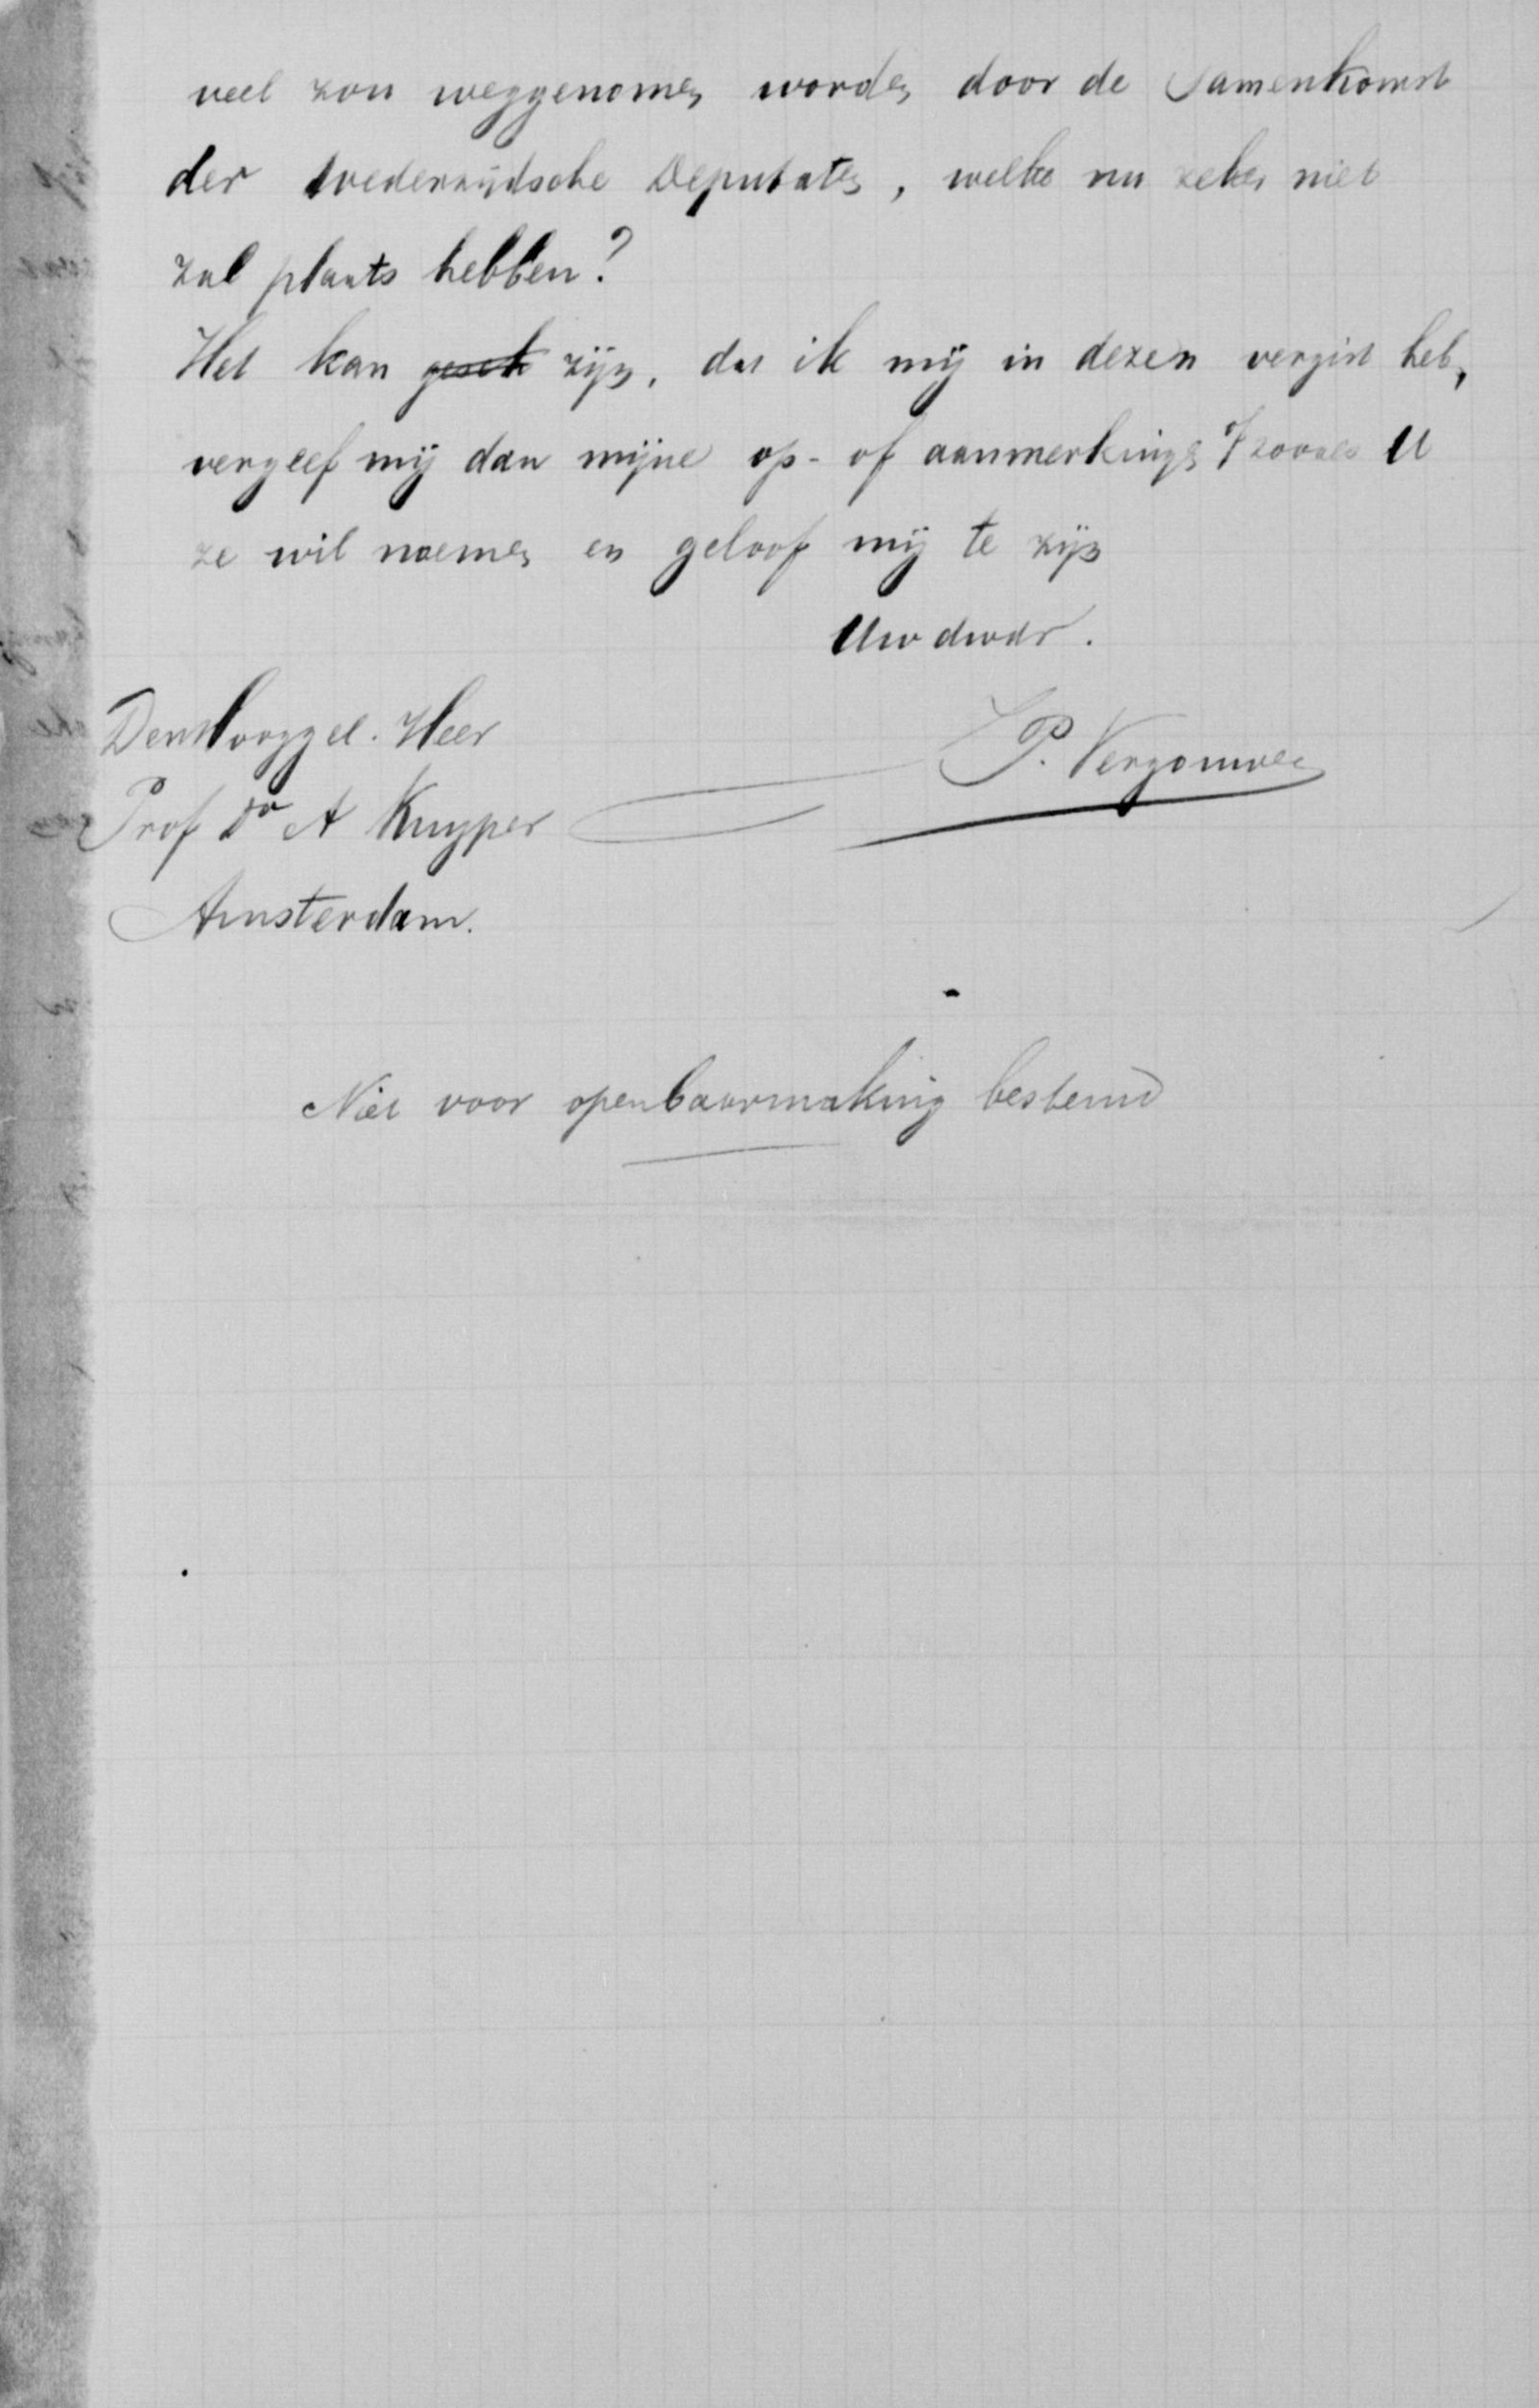 veel zou weggenomen worden door de Samenkomst
der wederzijdsche Deputaten, welke nu zeker niet
zal plaats hebben?
Het kan zijn, dat ik mij in dezen vergist heb,
vergeef mij dan mijne op- of aanmerkingen zooals U
ze wil noemen en geloof mij te zijn
Uw dwdr.
Den Hooggel. Heer
P. Vergouwen
Prof Dr A Kuyper
Amsterdam.
Niet voor openbaarmaking bestemd